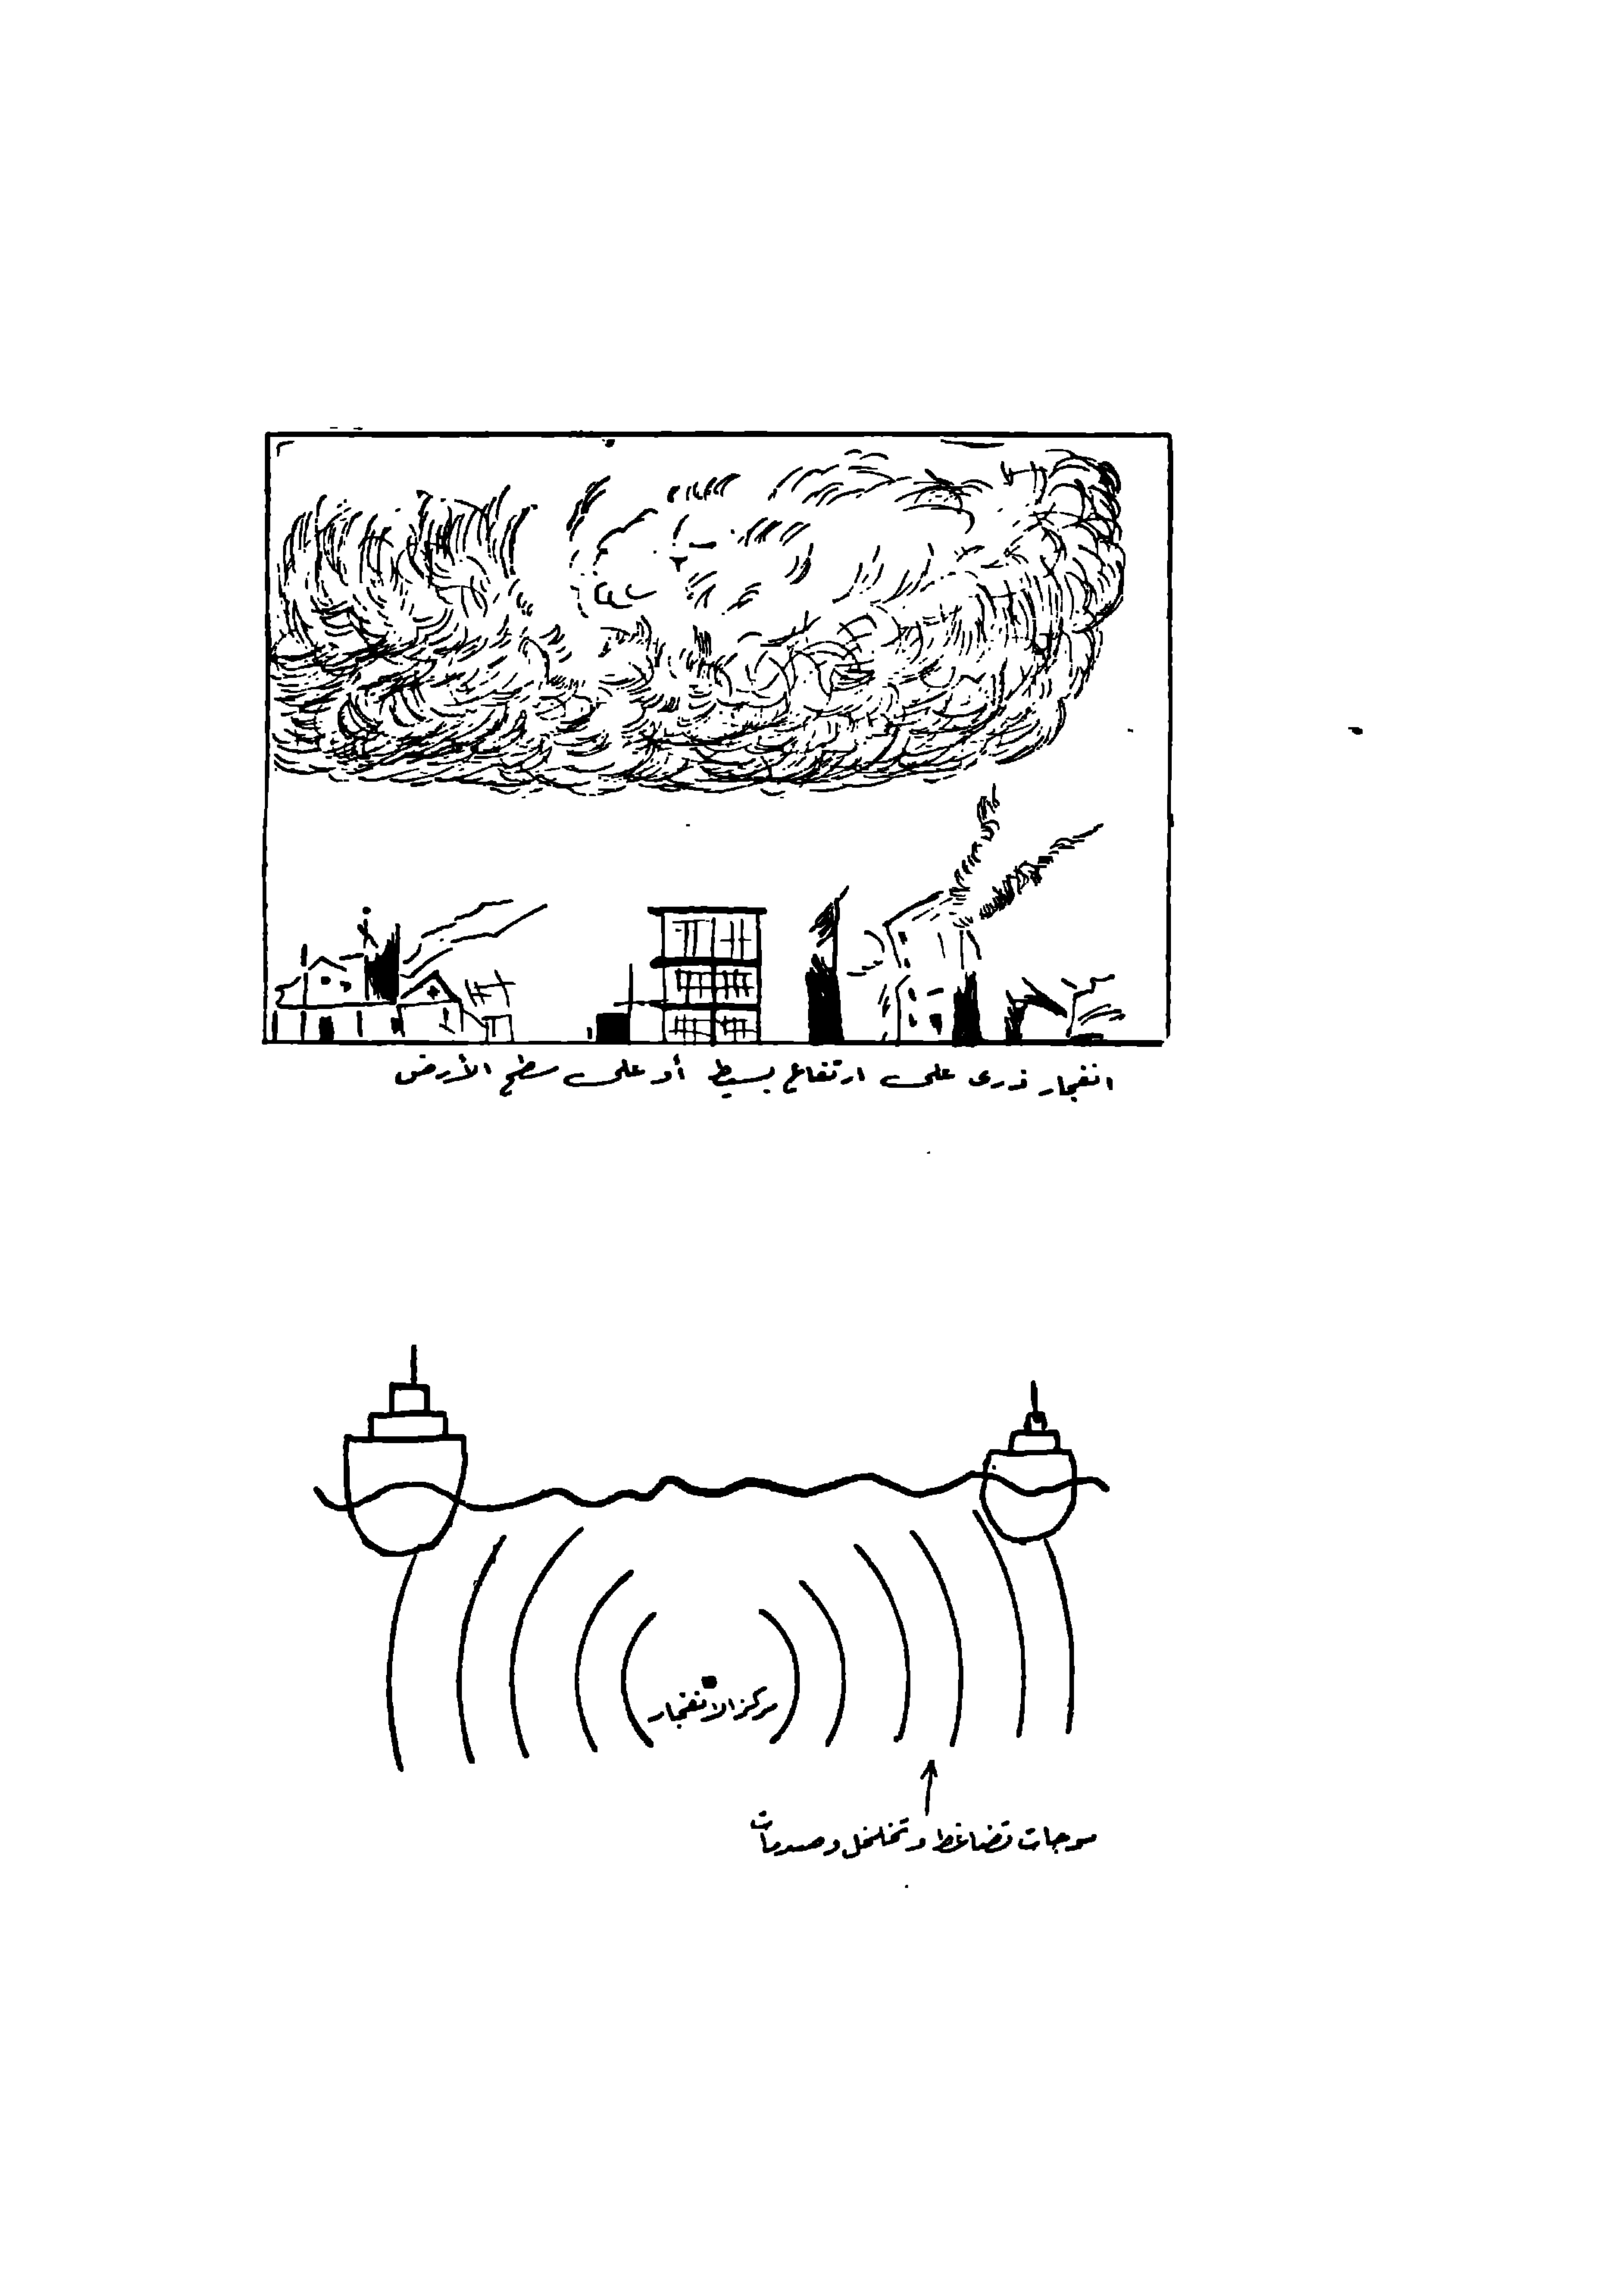 انفجار ذرى على ارتفاع بسيط أو على سطح الأرض
مركز الانفجار
موجات تضاغط وتخلخل وصدمات